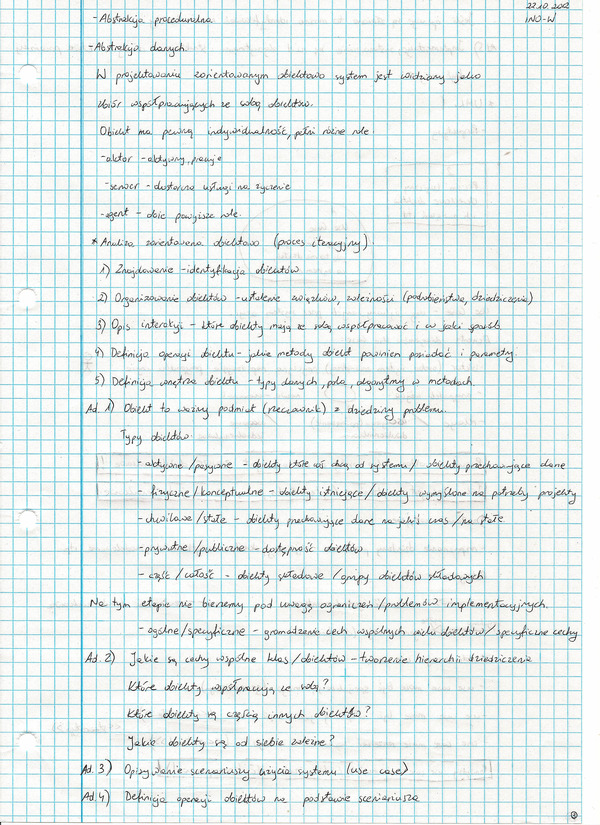 22.10.2012
INO-W
- Abstrakcja proceduralna
- Abstrakcja danych.
W projektowaniu zorientowanym obiektowo system jest widziany jako
zbiór współpracujących ze sobą obiektów.
Obiekt ma pewną indywidualność, pełni różne role
- aktor - aktywny, pracuje
- serwer - dostarcza usługi na życzenie
- agent - obie powyższe role.
* Analiza zorientowana obiektowo (proces iteracyjny).
1) Znajdowanie - identyfikacja obiektów
2) Organizowanie obiektów - ustalenie związków, zależności (podobieństwa, dziedziczenie)
3) Opis interakcji - które obiekty mają ze sobą współpracować i w jaki sposób
4) Definicja operacji obiektu - jakie metody obiekt powinien posiadać i parametry.
5) Definicja wnętrza obiektu - typy danych, pola, algorytmy w metodach.
Ad. 1) Obiekt to ważny podmiot (rzeczownik) z dziedziny problemu.
Typy obiektów
- aktywne / pasywne - obiekty które coś chcą od systemu / obiekty przechowujące dane
- fizyczne / konceptualne - obiekty istniejące / obiekty wymyślone na potrzeby projektu
- chwilowe / stałe - obiekty przechowujące dane na jakiś czas / na stałe
- prywatne / publiczne - dostępność obiektów
- część / całość - obiekty składowe / grupy obiektów składowych
Na tym etapie nie bierzemy pod uwagę ograniczeń / problemów implementacyjnych.
- ogólne / specyficzne - gromadzenie cech wspólnych wielu obiektów / specyficzne cechy
Ad. 2) Jakie są cechy wspólne klas / obiektów - tworzenie hierarchii dziedziczenia
Które obiekty współpracują ze sobą?
Które obiekty są częścią innych obiektów?
Jakie obiekty są od siebie zależne?
Ad. 3) Opisywanie scenariuszy użycia systemu (use case)
Ad. 4) Definicja operacji obiektów na podstawie scenariusza